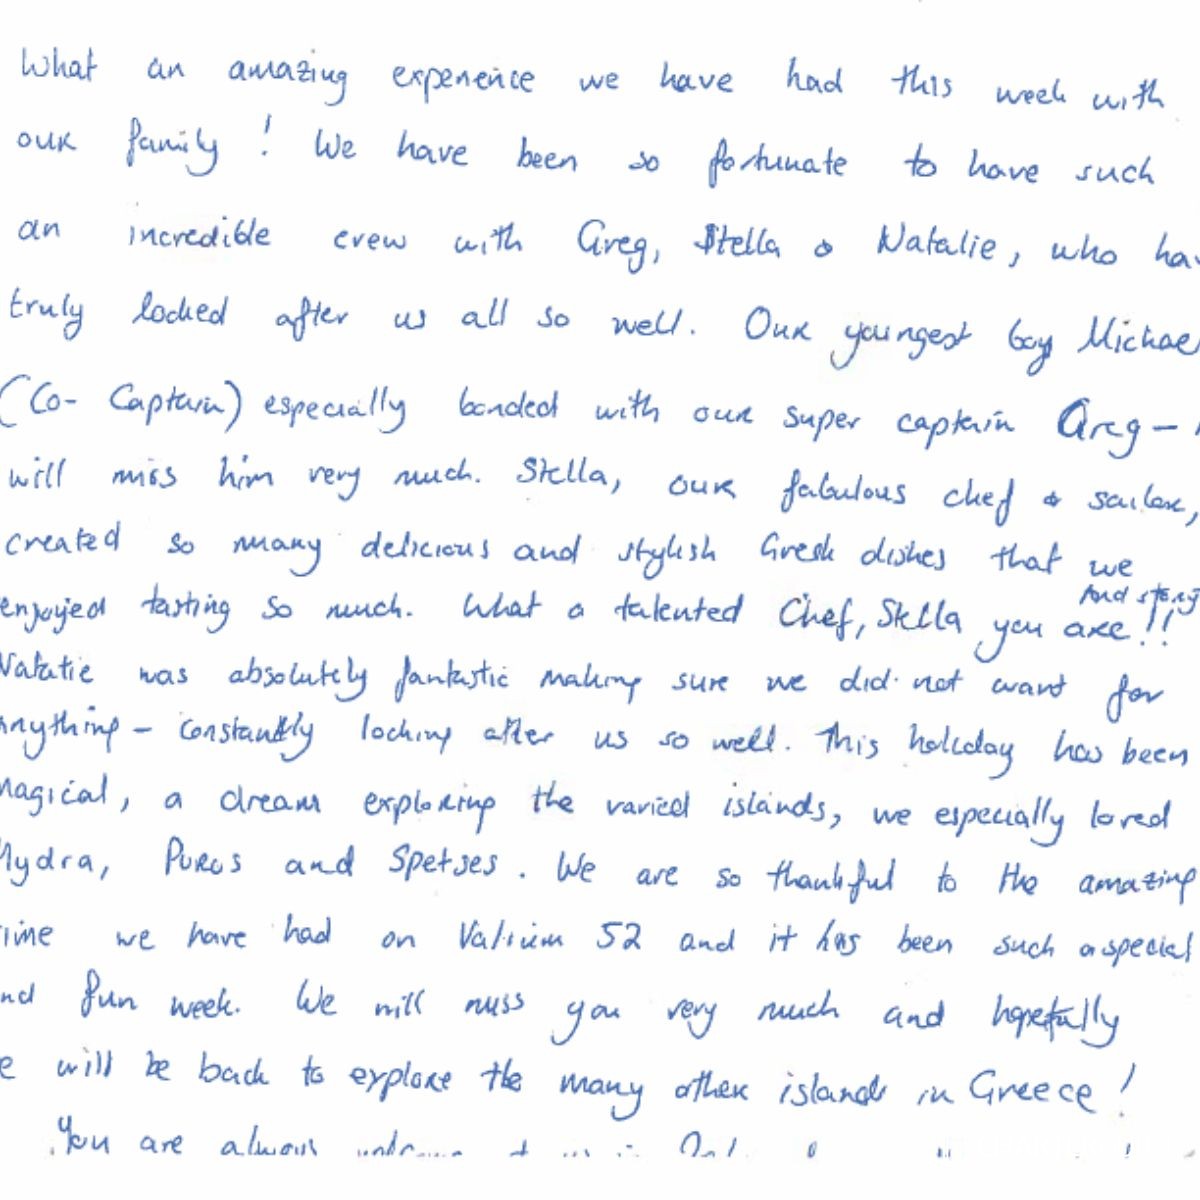 What an amazing experience we have had this week with
our family! We have been so fortunate to have such
an incredible crew with Greg, Stella & Natalie, who hav
truly looked after us all so well. Our youngest boy Michae
(Co-Captain) especially bonded with our super captain Greg -
will miss him very much. Stella, our fabulous chef & sailor,
created so many delicious and stylish Greek dishes that we
enjoyed tasting so much. What a talented Chef, Stella you are!!
And strong
Natalie was absolutely fantastic making sure we did not want for
anything - constantly looking after us so well. This holiday has been
magical, a dream exploring the varied islands, we especially loved
Hydra, Poros and Spetses. We are so thankful to the amazing
time we have had on Valium 52 and it has been such a special
nd fun week. We will miss you very much and hopefully
e will be back to explore the many other islands in Greece!
You are always